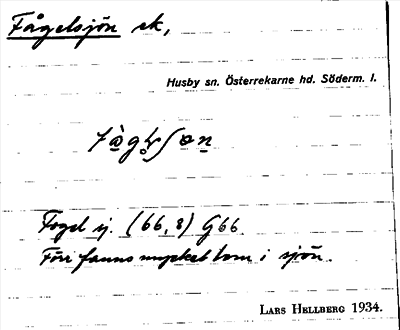 Fågelsjön sk,
Husby sn. Österrekarne hd. Söderm. l.
Fogel sj. (66,8) G66
Förr fanns mycket lom i sjön.
LARS HELLBERG 1934.